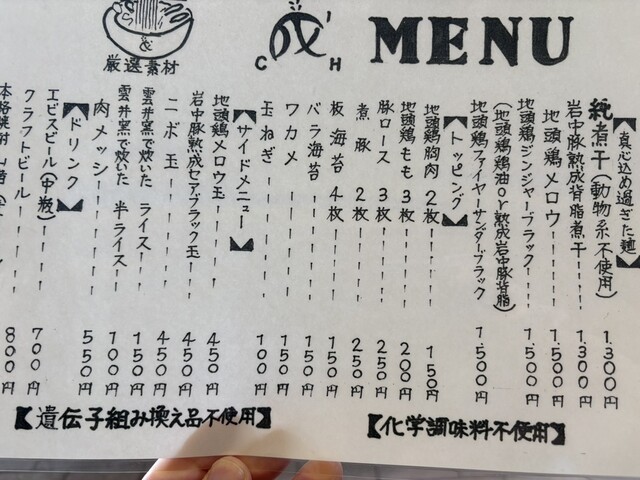 MENU
厳選素材
&
C H
【真心込め過ぎた麺】
純煮干(動物系不使用) 1.300円
岩中豚熟成背脂煮干 1.300円
地頭鶏メロウ 1.500円
地頭鶏ジンジャーブラック 1.500円
(地頭鶏鶏油or熟成岩中豚背脂)
地頭鶏ファイヤーサンダーブラック 1.500円
【トッピング】
地頭鶏胸肉 2枚 150円
地頭鶏もも 3枚 200円
豚ロース 3枚 260円
煮豚 2枚 250円
板海苔 4枚 150円
バラ海苔 150円
ワカメ 150円
玉ねぎ 100円
【サイドメニュー】
地頭鶏メロウ玉 450円
岩中豚熟成セアブラック玉 450円
ニボ玉 450円
雲井窯で炊いた ライス 150円
雲井窯で炊いた 半ライス 100円
肉メッシ 550円
【ドリンク】
エビスビール(中瓶) 700円
クラフトビール 800円
【化学調味料不使用】
【遺伝子組み換え品不使用】